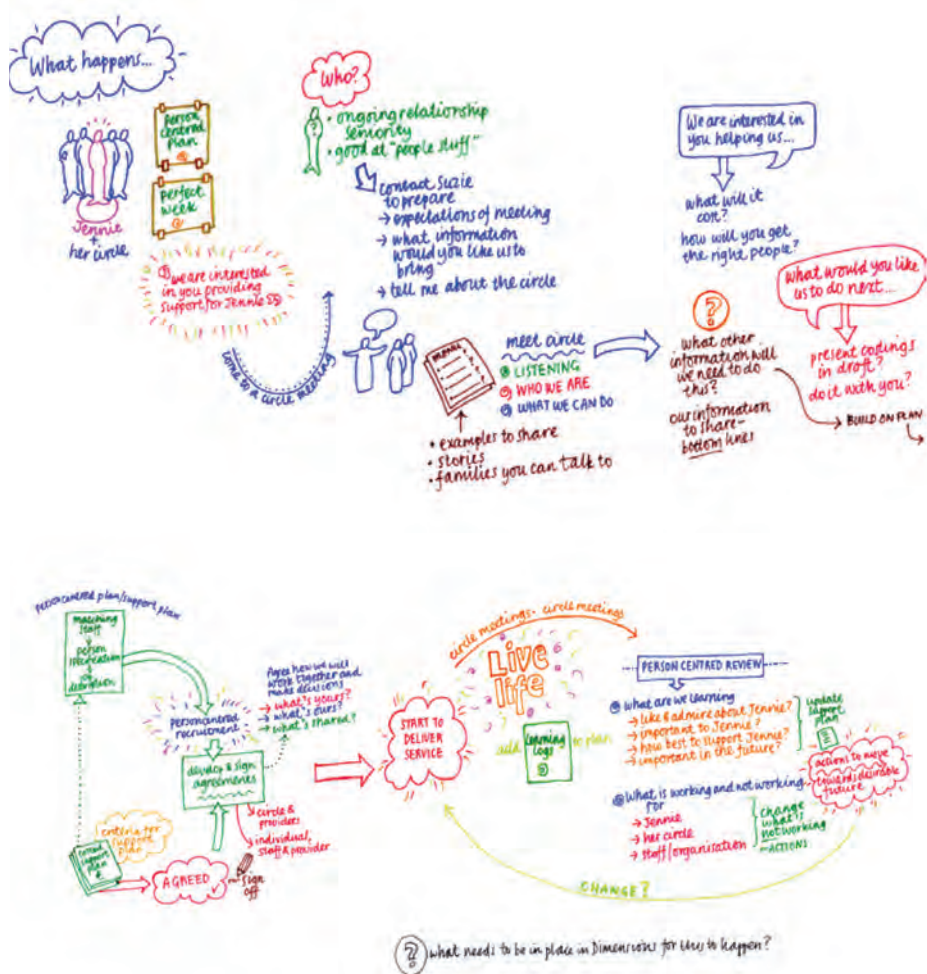 What happens...
person
centred
plan
perfect
week
Jennie
+
her circle
we are interested
in you providing
support for Jennie
come to a circle meeting
Who?
• ongoing relationship
seniority
• good at "people stuff"
contact Suzie
to prepare
→ expectations of meeting
→ what information
would you like us to
bring
→ tell me about the circle
meet circle
LISTENING
WHO WE ARE
WHAT WE CAN DO
• examples to share
• stories
• families you can talk to
We are interested in
you helping us...
what will it
cost?
how will you get
the right people?
?
what other
information will
we need to do
this?
our information
to share-
bottom lines
What would you like
us to do next...
present costings
in draft?
do it with you?
→ BUILD ON PLAN
person centred plan/support plan
matching
staff
person
specification
job
description
Person centred
recruitment
Agree how we will
work together and
make decisions
→ what's yours?
→ what's ours?
→ what's shared?
develop & sign
agreements
circle &
providers
individual,
staff & provider
criteria for
support
plan
support
plan
AGREED
sign
off
START TO
DELIVER
SERVICE
circle meetings - circle meetings
Live
life
add learning logs to plan
PERSON CENTRED REVIEW
what are we learning
→ like & admire about Jennie?
→ important to Jennie?
→ how best to support Jennie?
→ important in the future?
update
support
plan
What is working and not working
for
→ Jennie
→ her circle
→ staff/organisation
change
what is
not working
ACTIONS
actions to move
towards desirable
future
CHANGE?
? what needs to be in place in Dimensions for this to happen?